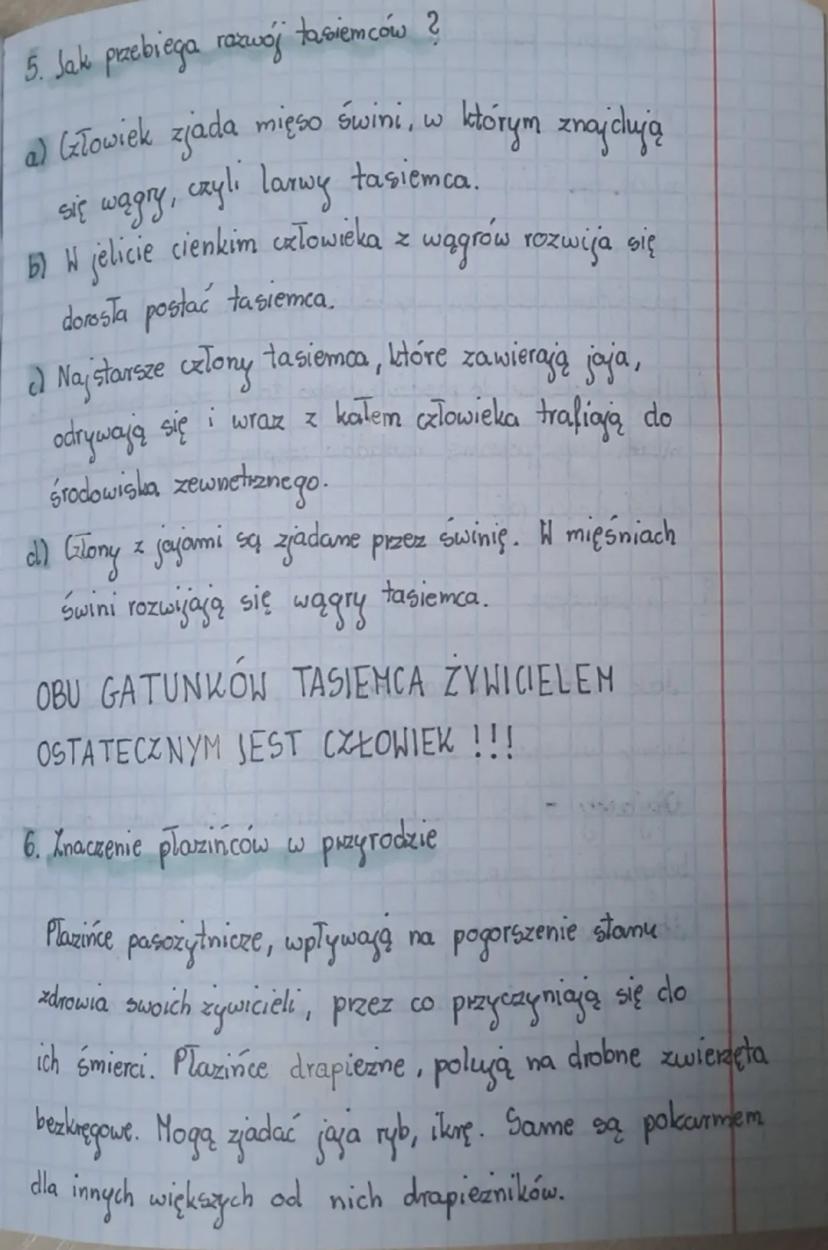 5. Jak przebiega rozwój tasiemców ?
a) Człowiek zjada mięso świni, w którym znajdują
się wągry, czyli larwy tasiemca.
b) W jelicie cienkim człowieka z wągrów rozwija się
dorosła postać tasiemca.
c) Najstarsze człony tasiemca, które zawierają jaja,
odrywają się i wraz z kałem człowieka trafiają do
środowiska zewnetrznego.
d) Człony z jajami są zjadane przez świnię. W mięśniach
świni rozwijają się wągry tasiemca.
OBU GATUNKÓW TASIEMCA ŻYWICIELEM
OSTATECZNYM JEST CZŁOWIEK !!!
6. Znaczenie płazińców w przyrodzie
Płazińce pasożytnicze, wpływają na pogorszenie stanu
zdrowia swoich żywicieli, przez co przyczyniają się do
ich śmierci. Płazińce drapieżne, polują na drobne zwierzęta
bezkręgowe. Mogą zjadać jaja ryb, ikrę. Same są pokarmem
dla innych większych od nich drapieżników.